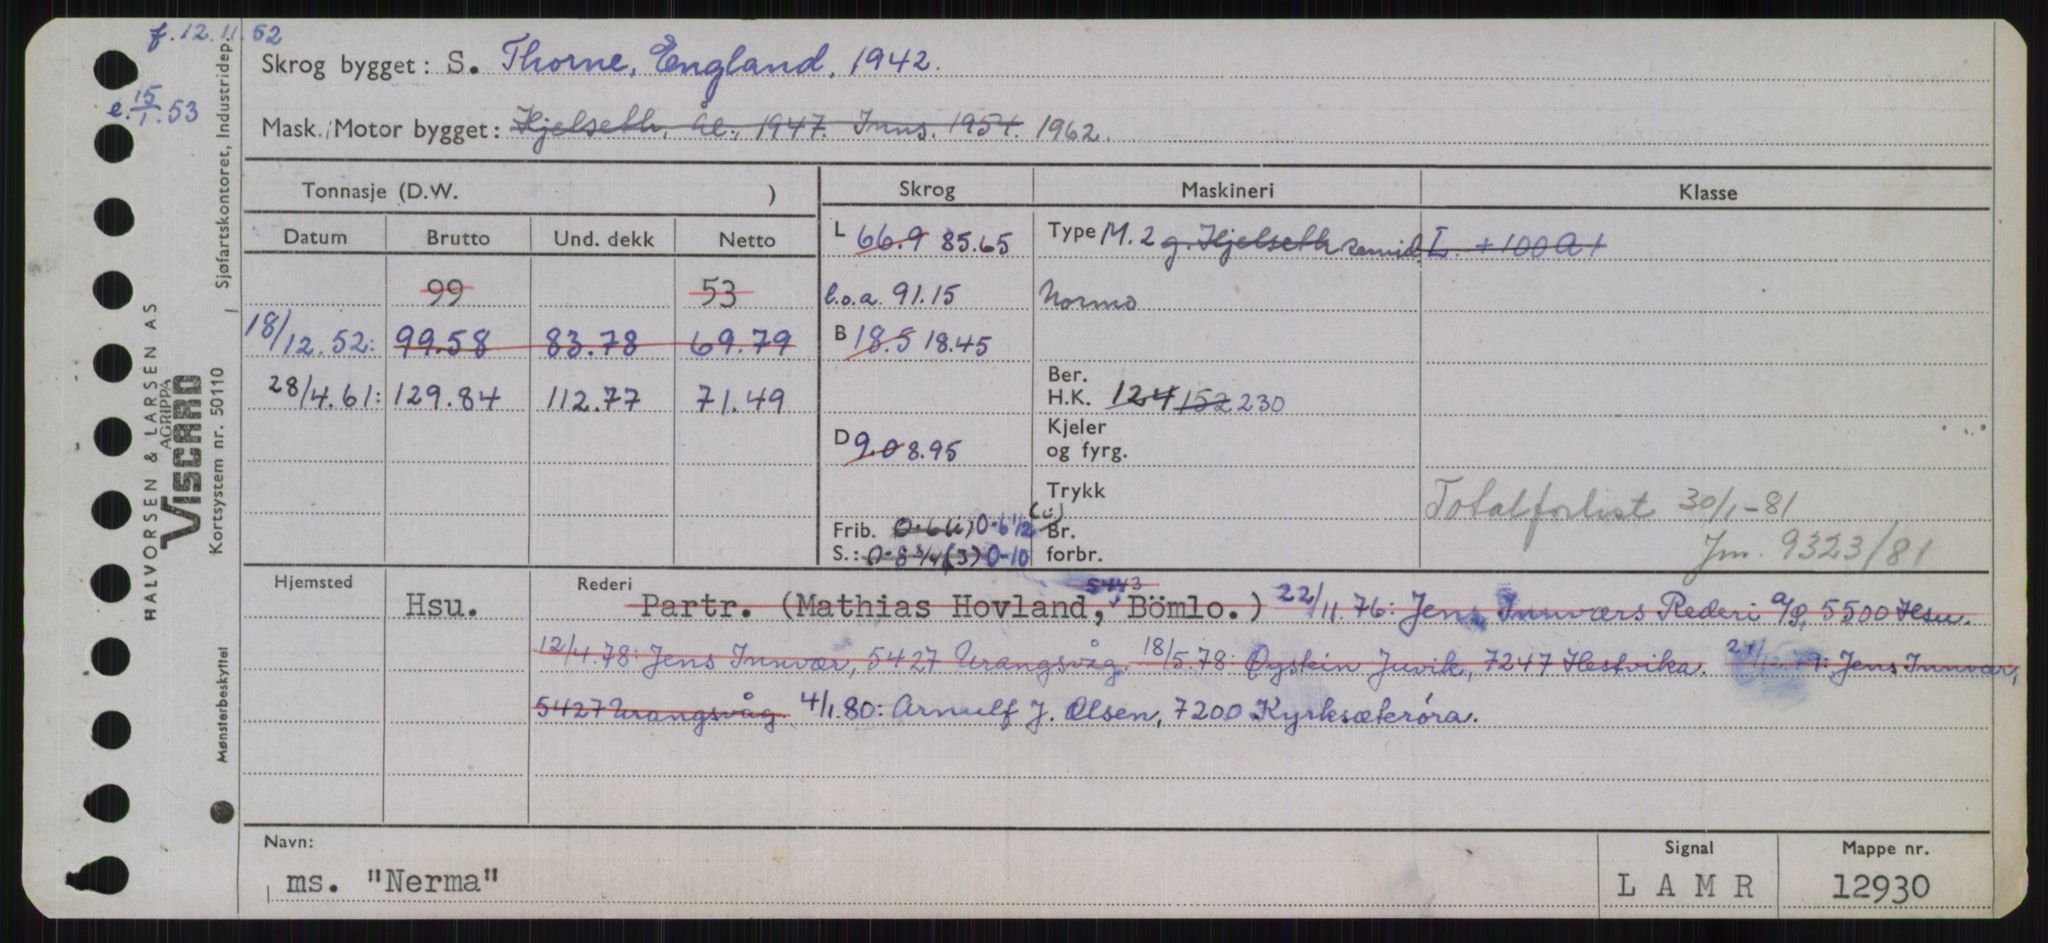 f. 12.11.52
e. 15/1.53
Skrog bygget: S. Thorne, England, 1942.
Mask./Motor bygget: Hjelseth, Ål., 1947. Inns. 1954. 1962.
Tonnasje (D.W. ) Skrog Maskineri Klasse
Datum Brutto Und. dekk Netto
L 66.9 85.65 Type M. 2 g. Hjelseth semid. L. +100A1
99 53 l.o.a. 91.15 Normo
18/12.52: 99.58 83.78 69.79 B 18.5 18.45
28/4.61: 129.84 112.77 71.49 Ber. H.K. 124 152 230
D 9.0 8.95 Kjeler og fyrg.
Trykk Totalforlist 30/1-81
Frib. 0-6 (i) 0-6 1/2 (i) Br. forbr. Jm. 9323/81
S.: 0-8 3/4 (s) 0-10
Hjemsted Rederi 5443
Hsu. Partr. (Mathias Hovland, Bömlo.) 22/11.76: Jens Innværs Rederi A/S, 5500 Hsu.
12/4.78: Jens Innvær, 5427 Urangsvåg. 18/5.78: Øystein Juvik, 7247 Hestvika. 21/12.79: Jens Innvær,
5427 Urangsvåg. 4/1.80: Arnulf J. Olsen, 7200 Kyrksæteröra.
Navn: Signal Mappe nr.
ms. "Nerma" L A M R 12930
HALVORSEN & LARSEN AS
AGRIPPA
VISCARD
Kortsystem nr. 50110
Sjøfartskontoret, Industridep.
Mønsterbeskyttet